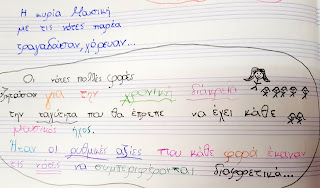 Η κυρία Μουσική
με τις νότες παρέα
τραγουδούσαν, χόρευαν...
Οι νότες πολλές φορές
ζητούσαν για την χρονική διάρκεια
την ταχύτητα που θα έπρεπε να έχει κάθε
μουσικός ήχος.
Ήταν οι ρυθμικές αξίες που κάθε φορά έκαναν
τις νότες να συμπεριφέρονται διαφορετικά...